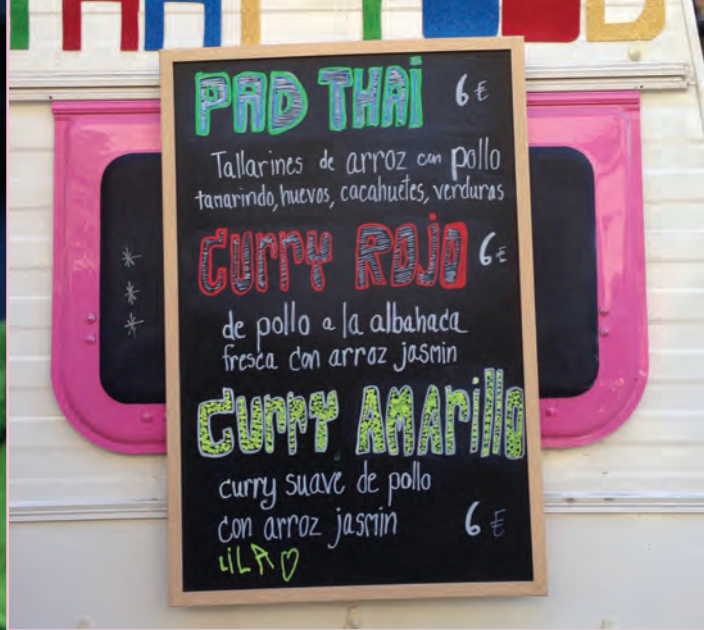 THAI FOOD
PAD THAI 6€
Tallarines de arroz con pollo
tamarindo, huevos, cacahuetes, verduras
CURRY ROJO 6€
de pollo a la albahaca
fresca con arroz jasmin
CURRY AMARillO
curry suave de pollo
con arroz jasmin 6€
LiLA